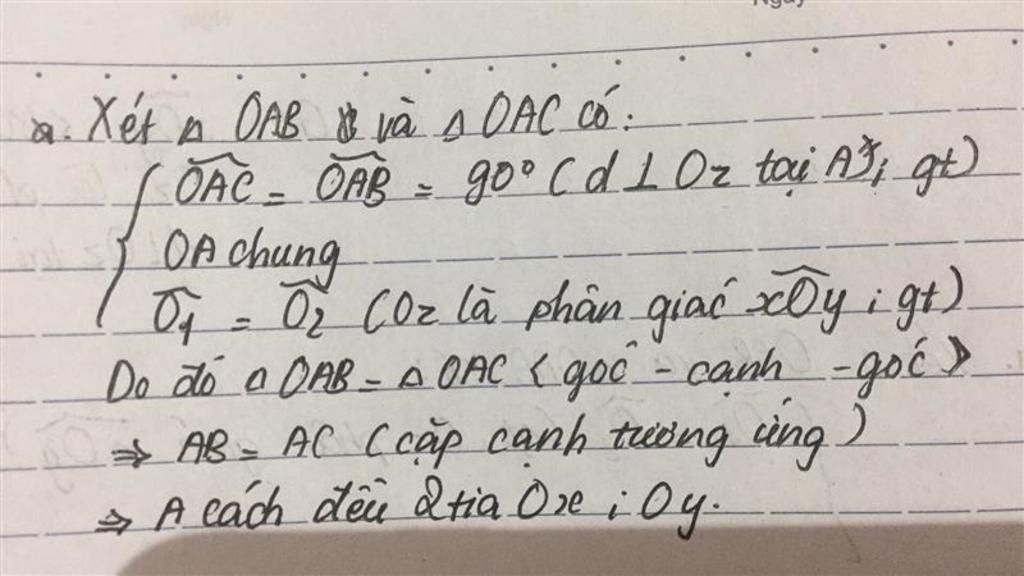 Ngày
a. Xét △ OAB và △ OAC có:
{ OAC^ = OAB^ = 90° (d ⊥ Oz tại A; gt)
OA chung
O1^ = O2^ (Oz là phân giác xOy^; gt)
Do đó △ OAB = △ OAC (góc - cạnh - góc)
⇒ AB = AC (cặp cạnh tương ứng)
⇒ A cách đều 2 tia Ox; Oy.